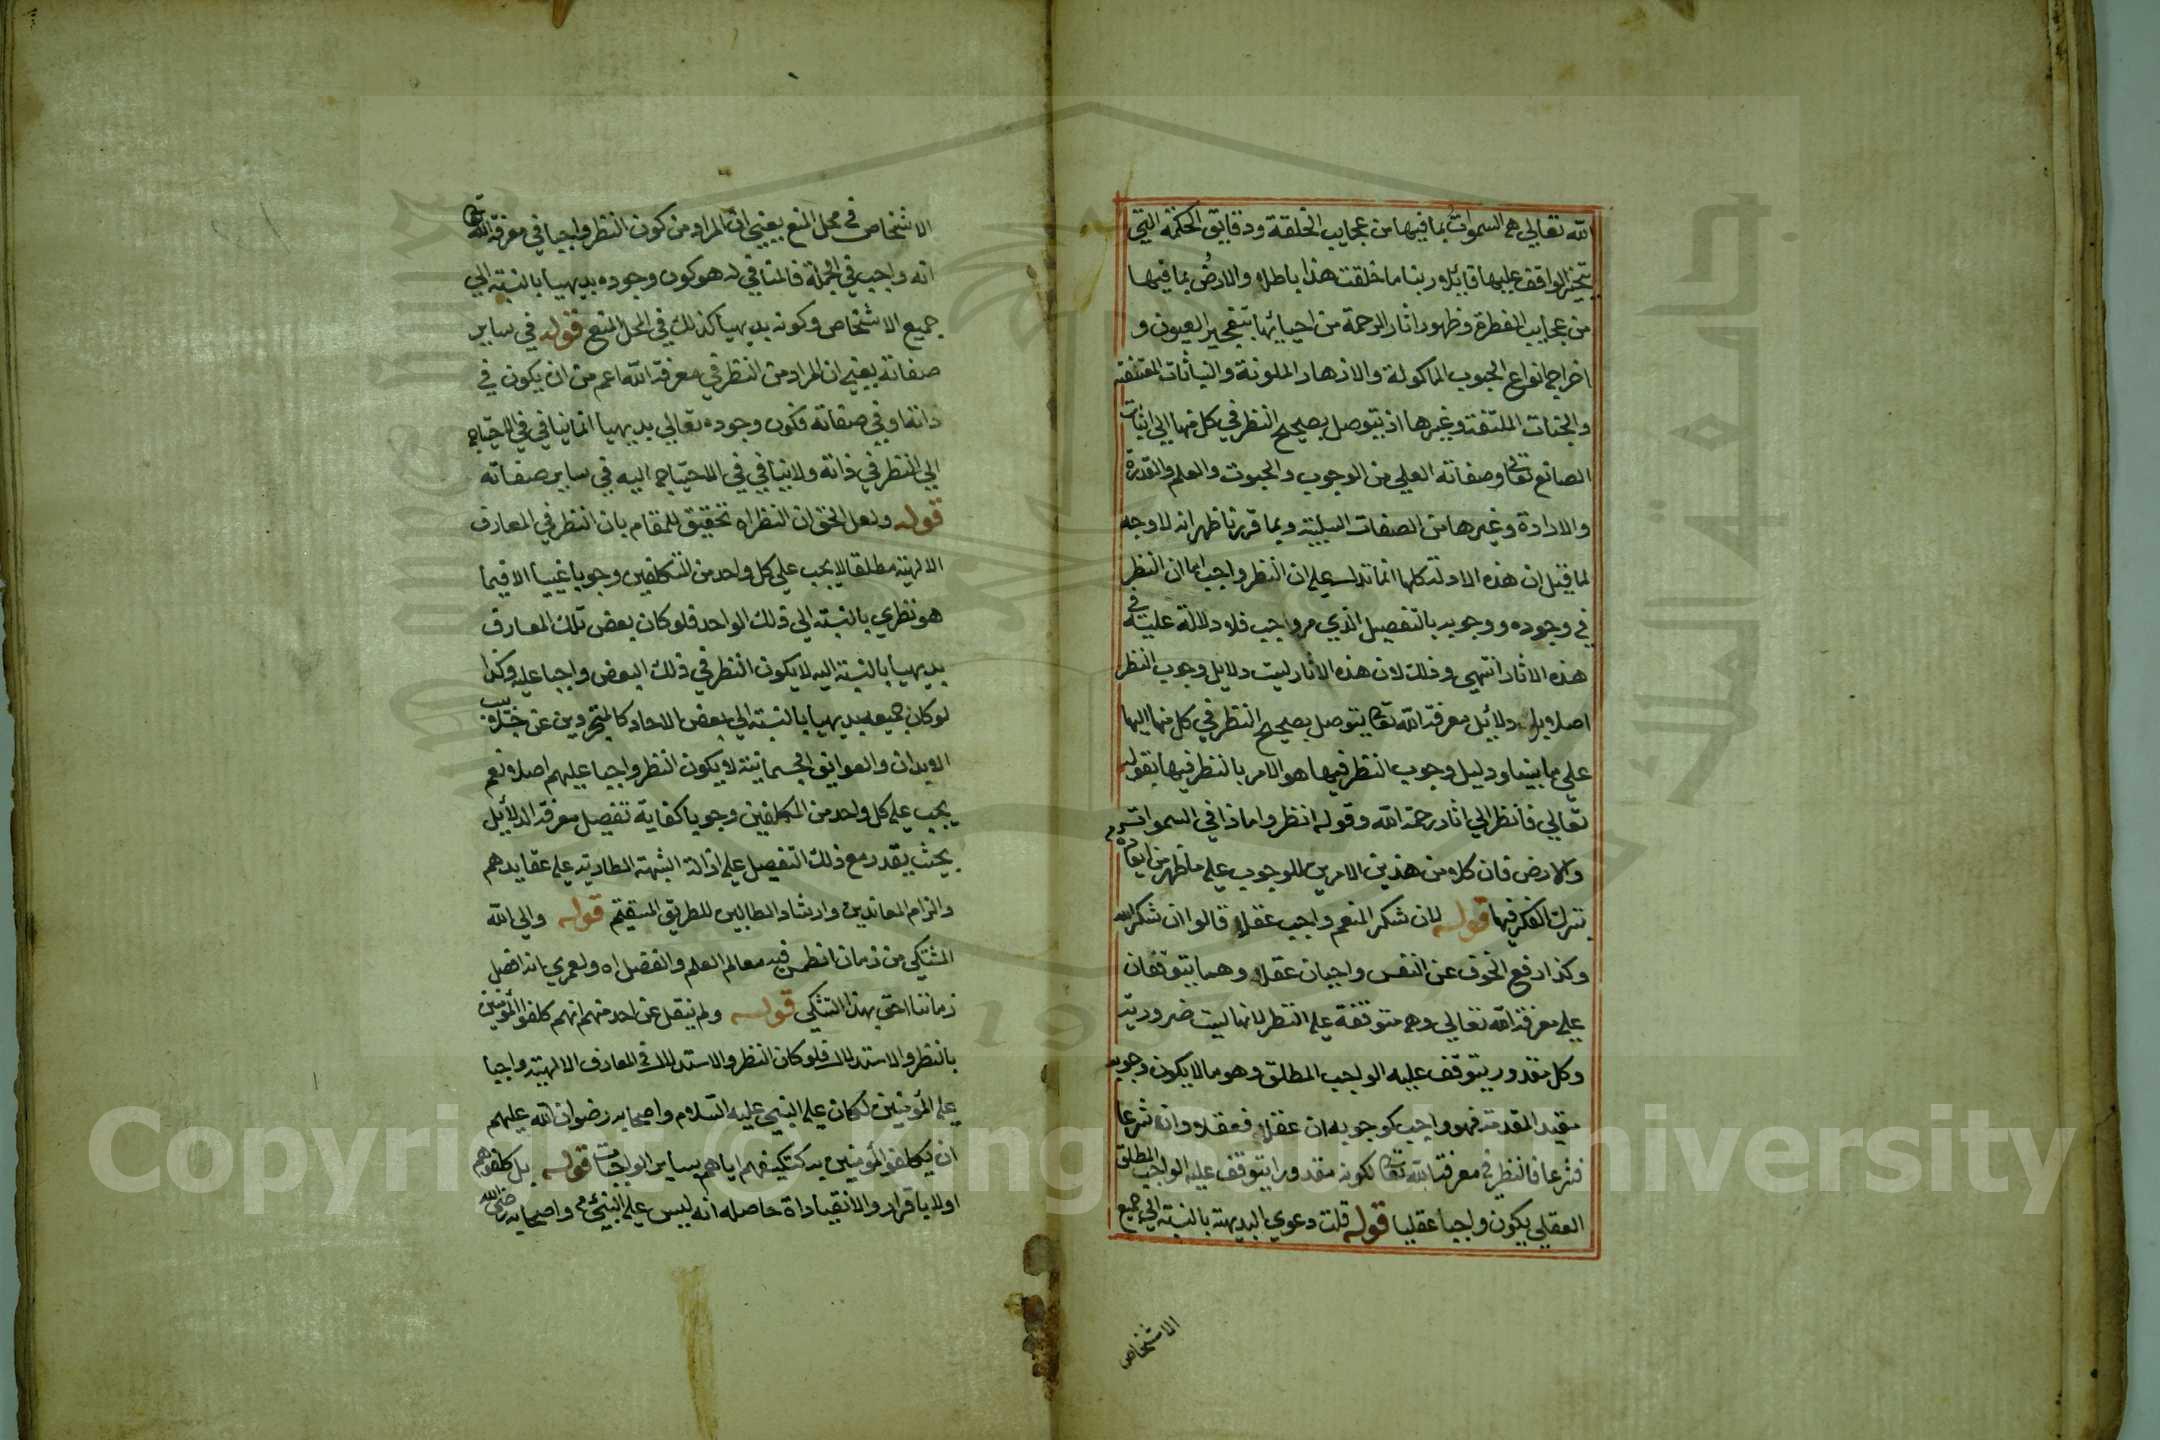 الله تعالي هي السموات بما فيها من عجايب الخلقة ودقايق الحكمة التي
يتحيز الواقف عليها قائلا ربنا ما خلقت هذا باطلا والارض بما فيها
من عجايب الفطرة وظهور اثار الرحمة من احيائها بتفجير العيون و
اخراج انواع الحبوب الماكولة والازهار الملونة والنباتات
والجنات الملتفة وغيرها اذ يتوصل بصحيح النظر في كل منها الي اثبات
الصانع تعالي وصفاته العلي من الوجوب والحيوت والعلم والقدرة
والارادة وغيرها من الصفات السلبية وبما قررنا ظهر انه لا وجه
لما قيل ان هذه الادلة كلها انما تدل علي ان النظر واجب اما ان النظر
في وجوده ووجوبه بالتفصيل الذي مر واجب فلا دلالة عليه في
هذه الاثار انتهي وذلك لان هذه الاثار ليست دلايل وجوب النظر
اصلا بل دلائل معرفة الله تعالي يتوصل بصحيح النظر في كل منها اليها
علي ما بينا ودليل وجوب النظر فيها هو الامر بالنظر فيها بقوله
تعالي فانظر الي اثار رحمة الله وقوله انظروا ماذا في السموات
والارض فان كلا من هذين الامرين للوجوب علي ما ظهر من ايعاده م
بترك الفكر فيها قوله لان شكر المنعم واجب عقلا قالوا ان شكر الله
وكذا دفع الخوف عن النفس واجبان عقلا وهما يتوقفان
علي معرفة الله تعالي وهي متوقفة علي النظر لانها ليست ضرورية
وكل مقدور يتوقف عليه الواجب المطلق وهو ما لا يكون وجوبه
مقيد المقدمة فهو واجب كوجوبه ان عقلا فعقلا وان شرعا
فشرعا فالنظر في معرفة الله تعالي لكونه مقدورا يتوقف عليه الواجب المطلق
العقلي يكون واجبا عقليا قوله قلت دعوي البديهة بالنسبة الي جميع
الاشخاص
الاشخاص في محل المنع يعني ان المراد من كون النظر واجبا في معرفة الله تعالي
انه واجب في الجملة فالمنافي له هو كون وجوده بديهيا بالنسبة الي
جميع الاشخاص وكونه بديهيا كذلك في محل المنع قوله في ساير
صفاته يعني ان المراد من النظر في معرفة الله اعم من ان يكون في
ذاته او في صفاته فكون وجوده تعالي بديهيا انما ينافي في الاحتياج
الي النظر في ذاته ولا ينافي في الاحتياج اليه في ساير صفاته
قوله ولعل الحق ان النظر اه تحقيق للمقام بان النظر في المعارف
الالهية مطلقا لا يجب علي كل واحد من المكلفين وجوبا عينيا الا فيما
هو نظري بالنسبة الي ذلك الواحد فلو كان بعض تلك المعارف
بديهيا بالنسبة اليه لا يكون النظر في ذلك البعض واجبا عليه وكذا
لو كان جميعه بديهيا بالنسبة الي بعض الاحاد كالمتجردين عن جلابيب
الابدان والعوايق الجسمانية لا يكون النظر واجبا عليهم اصلا نعم
يجب علي كل واحد من المكلفين وجوبا كفاية تفصيل معرفة الدلائل
بحيث يقدر مع ذلك التفصيل علي ازالة الشبهة الطارية علي عقايدهم
والزام المعاندين وارشاد الطالبين للطريق المستقيم قوله والي الله
المشتكي من زمان انطمس فيه معالم العلم والفضل اه ولعمري انه افضل
زماننا احق بهذا التشكي قوله ولم ينقل عن احد منهم انهم كلفوا المؤمنين
بالنظر والاستدلال فلو كان النظر والاستدلال في المعارف الالهية واجبا
علي المؤمنين لكان علي النبي عليه السلام واصحابه رضوان الله عليهم
ان يكلفوا المؤمنين به كتكليفهم اياهم بساير الواجبات قوله بل كلفوهم
اولا باقرار والانقياد اه حاصله انه ليس علي النبي م واصحابه رضي الله
Copyright © King Saud University